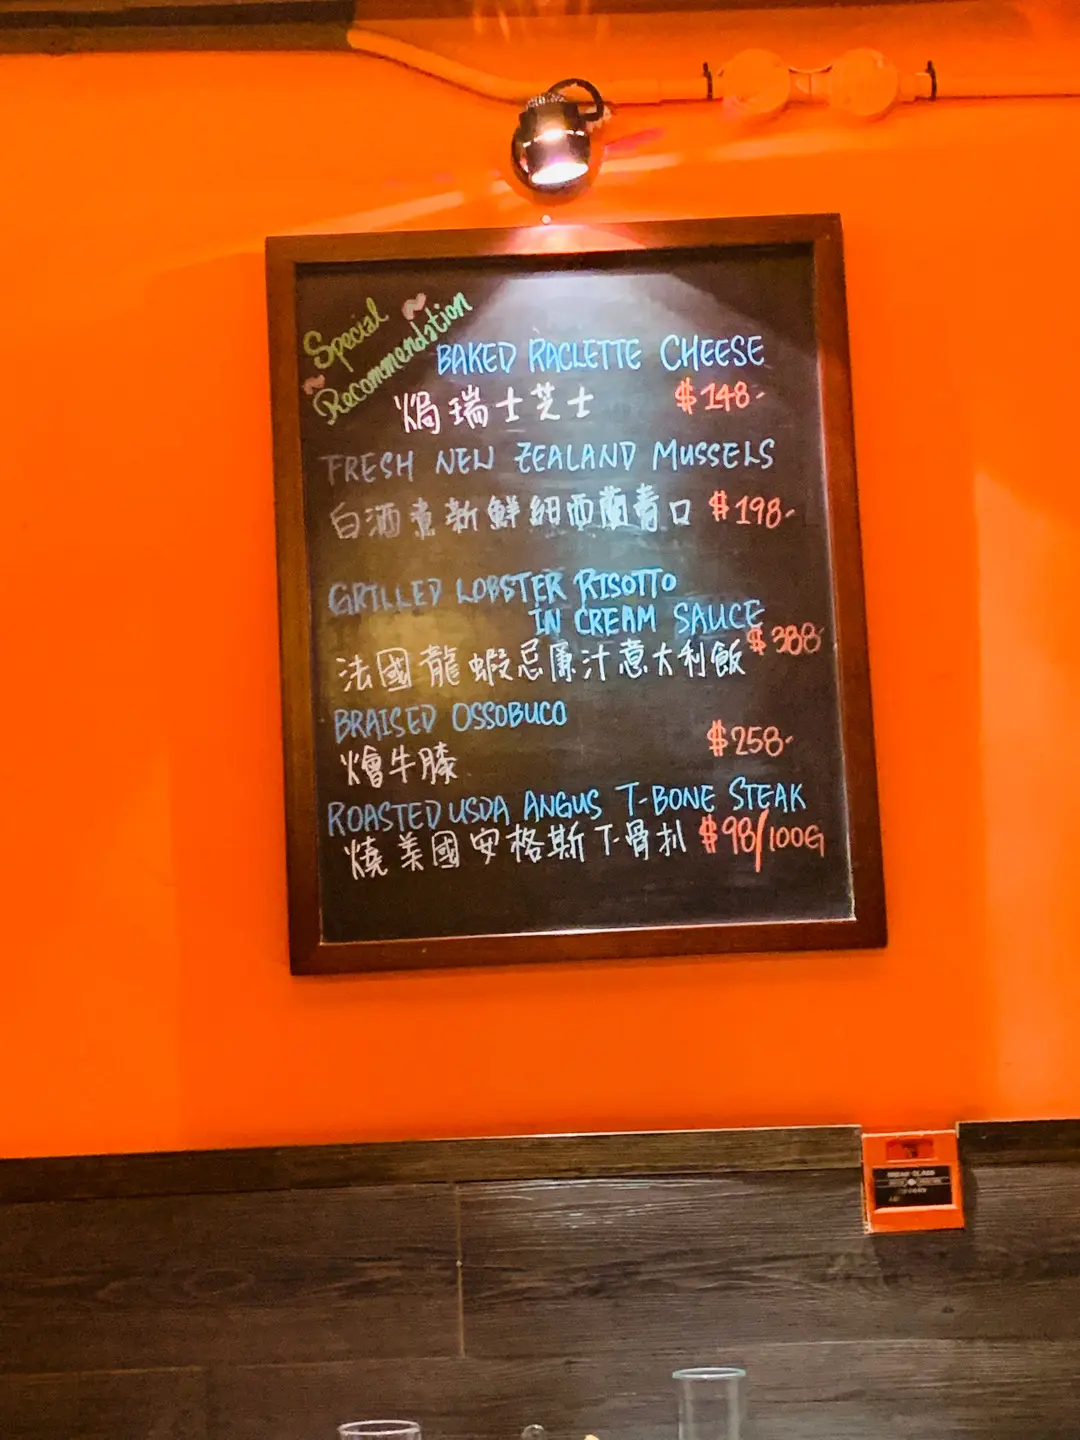 Special
Recommendation
BAKED RACLETTE CHEESE
焗瑞士芝士 $148-
FRESH NEW ZEALAND MUSSELS
白酒煮新鮮紐西蘭青口 $198-
GRILLED LOBSTER RISOTTO
IN CREAM SAUCE
法國龍蝦忌廉汁意大利飯 $388-
BRAISED OSSOBUCO
燴牛膝 $258-
ROASTED USDA ANGUS T-BONE STEAK
燒美國安格斯T-骨扒 $98/100G
BREAK GLASS